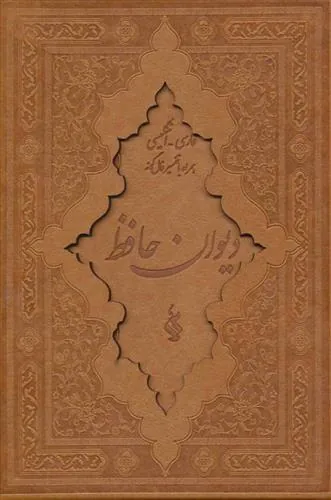 فارسی - انگلیسی
همراه با تفسیر فال گونه
دیوان حافظ